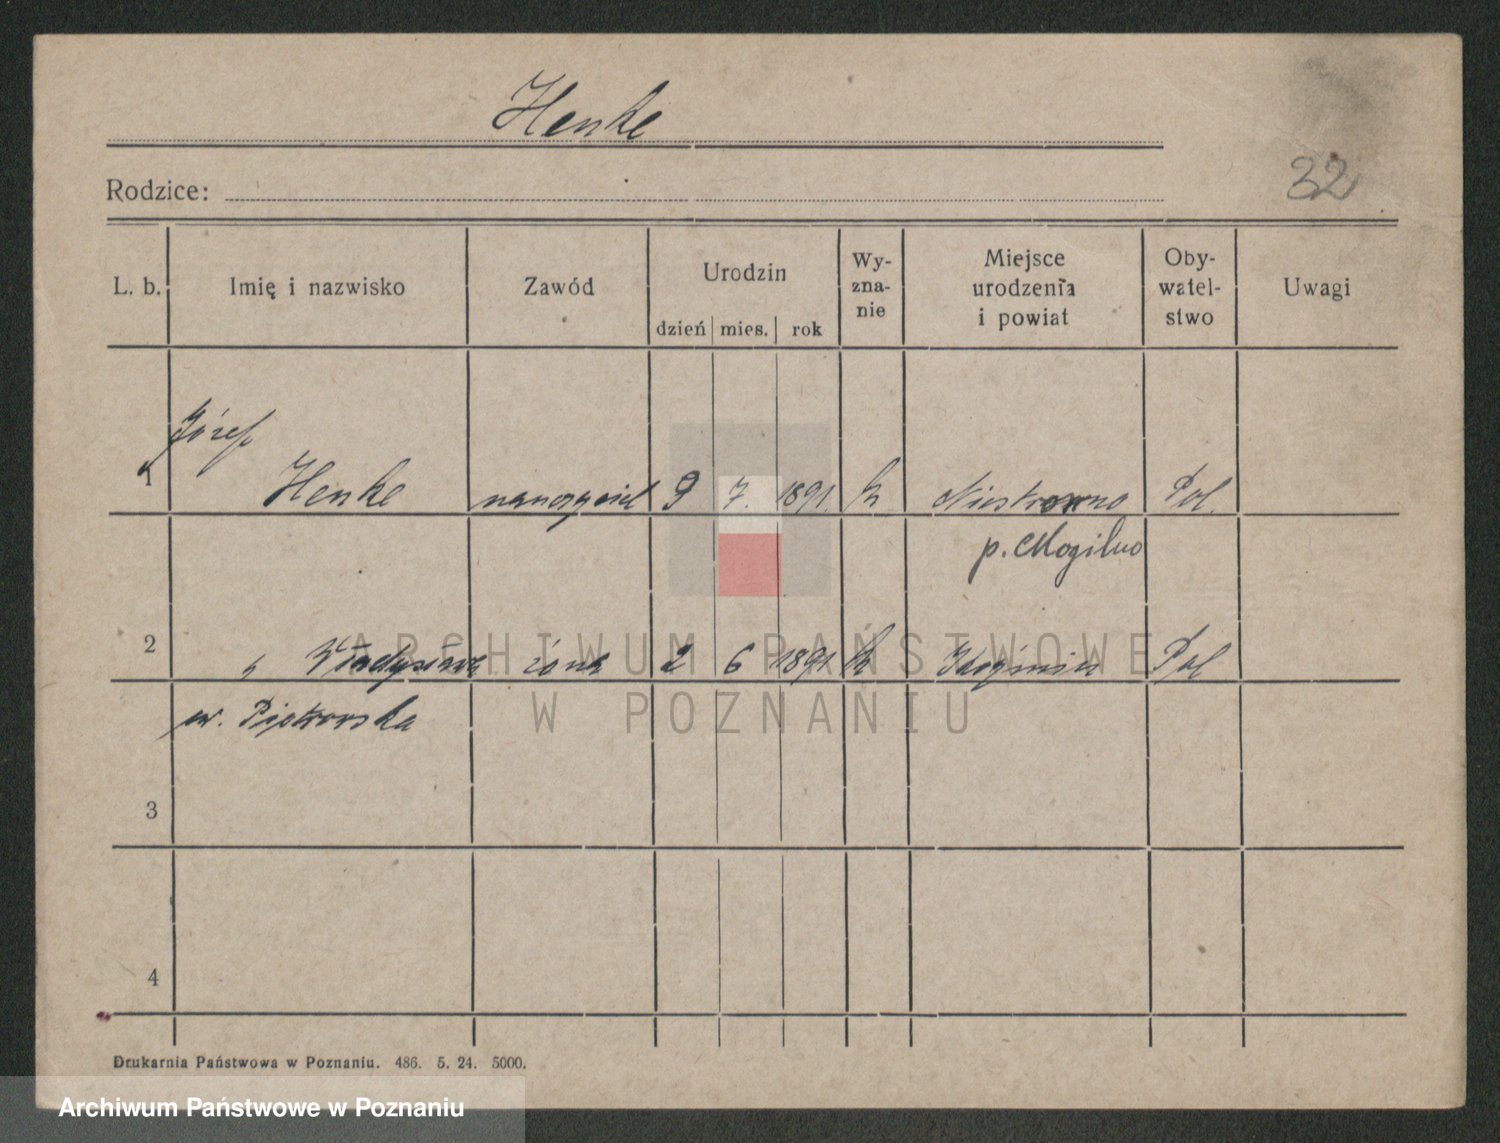 Henke
32
Rodzice:
L. b. Imię i nazwisko Zawód Urodzin dzień mies. rok Wy-zna-nie Miejsce urodzenia i powiat Oby-watel-stwo Uwagi
Józef
1 Henke 9 7. 1891. k Pol.
p. Mogilno
2 " Władysława żona 2 6 1891 k Pol
ur. Piotrowska
3
4
Drukarnia Państwowa w Poznaniu. 486. 5. 24. 5000.
ARCHIWUM PAŃSTWOWE
W POZNANIU
Archiwum Państwowe w Poznaniu